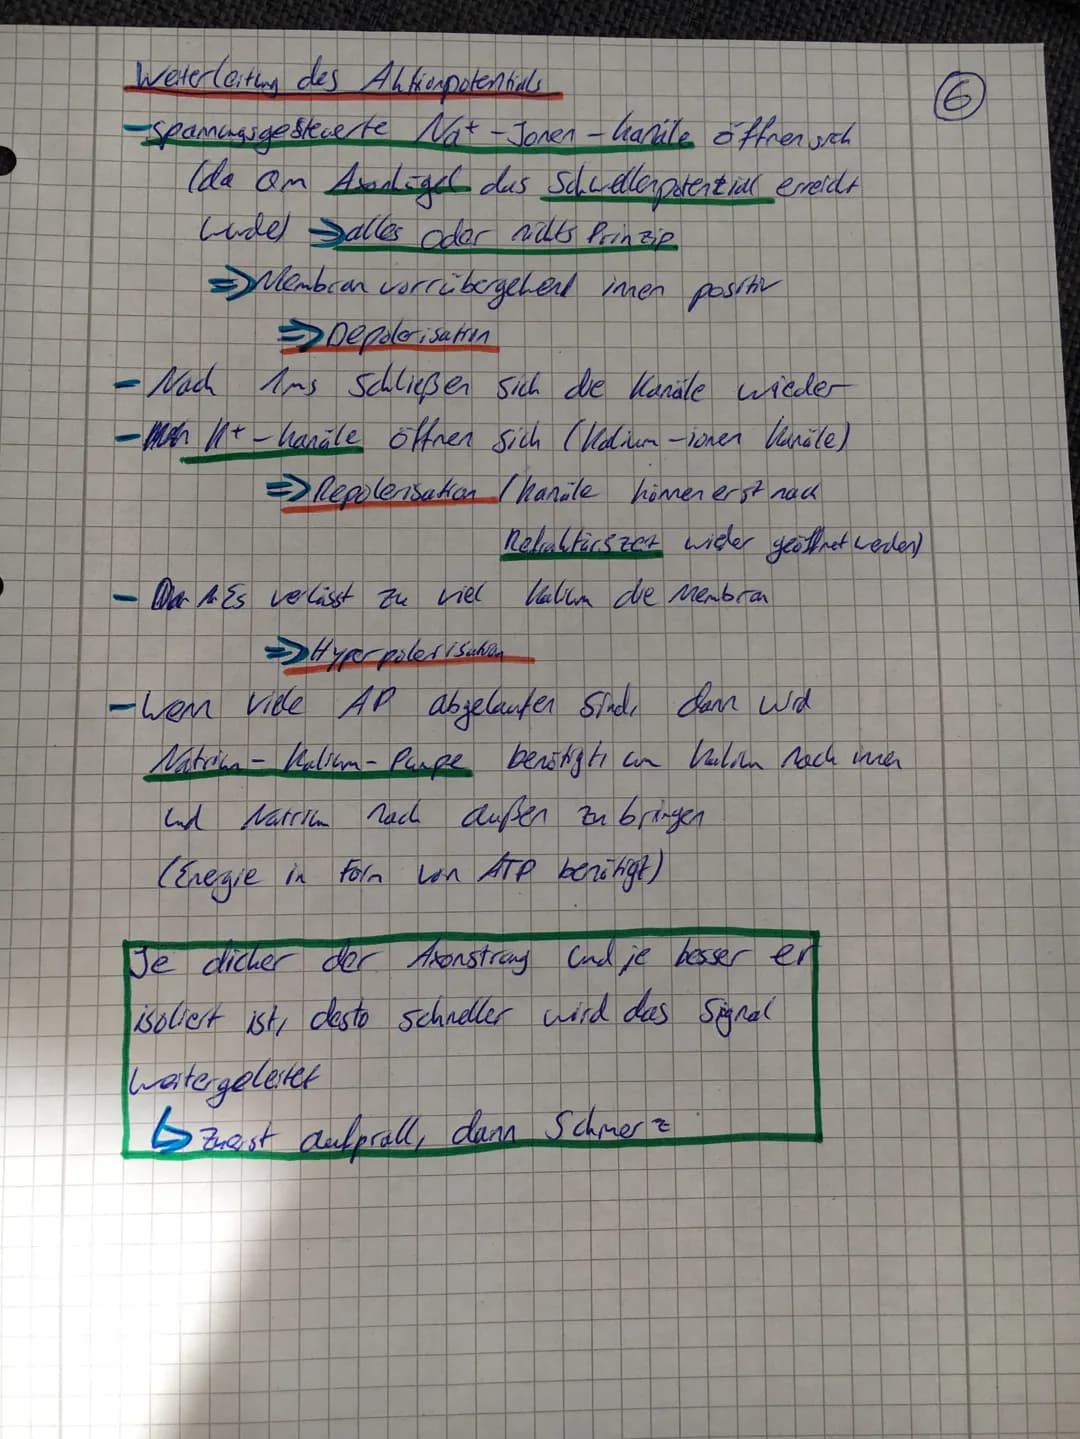 Weiterleitung des Aktionpotentials
6
- spannungsgesteuerte Na+ - Jonen - kanäle öffnen sich
(da am Axonhügel das Schwellenpotential erreicht
wurde) => alles oder nichts Prinzip
=> Membran vorrübergehend innen positiv
=> Depolarisation
- Nach 1ms schließen sich die Kanäle wieder
- K+ - kanäle öffnen sich (Kalium - ionen Kanäle)
=> Repolarisation (Kanäle können erst nach
Refraktärszeit wieder geöffnet werden)
- Es verlässt zu viel Kalium die Membran
=> Hyperpolarisation
- Wenn viele AP abgelaufen sind, dann wird
Natrium - Kalium - Pumpe benötigt, um Kalium nach innen
und Natrium nach außen zu bringen
(Energie in Form von ATP benötigt)
Je dicker der Axonstrang und je besser er
isoliert ist, desto schneller wird das Signal
weitergeleitet
↳ Zuerst aufprall, dann Schmerz